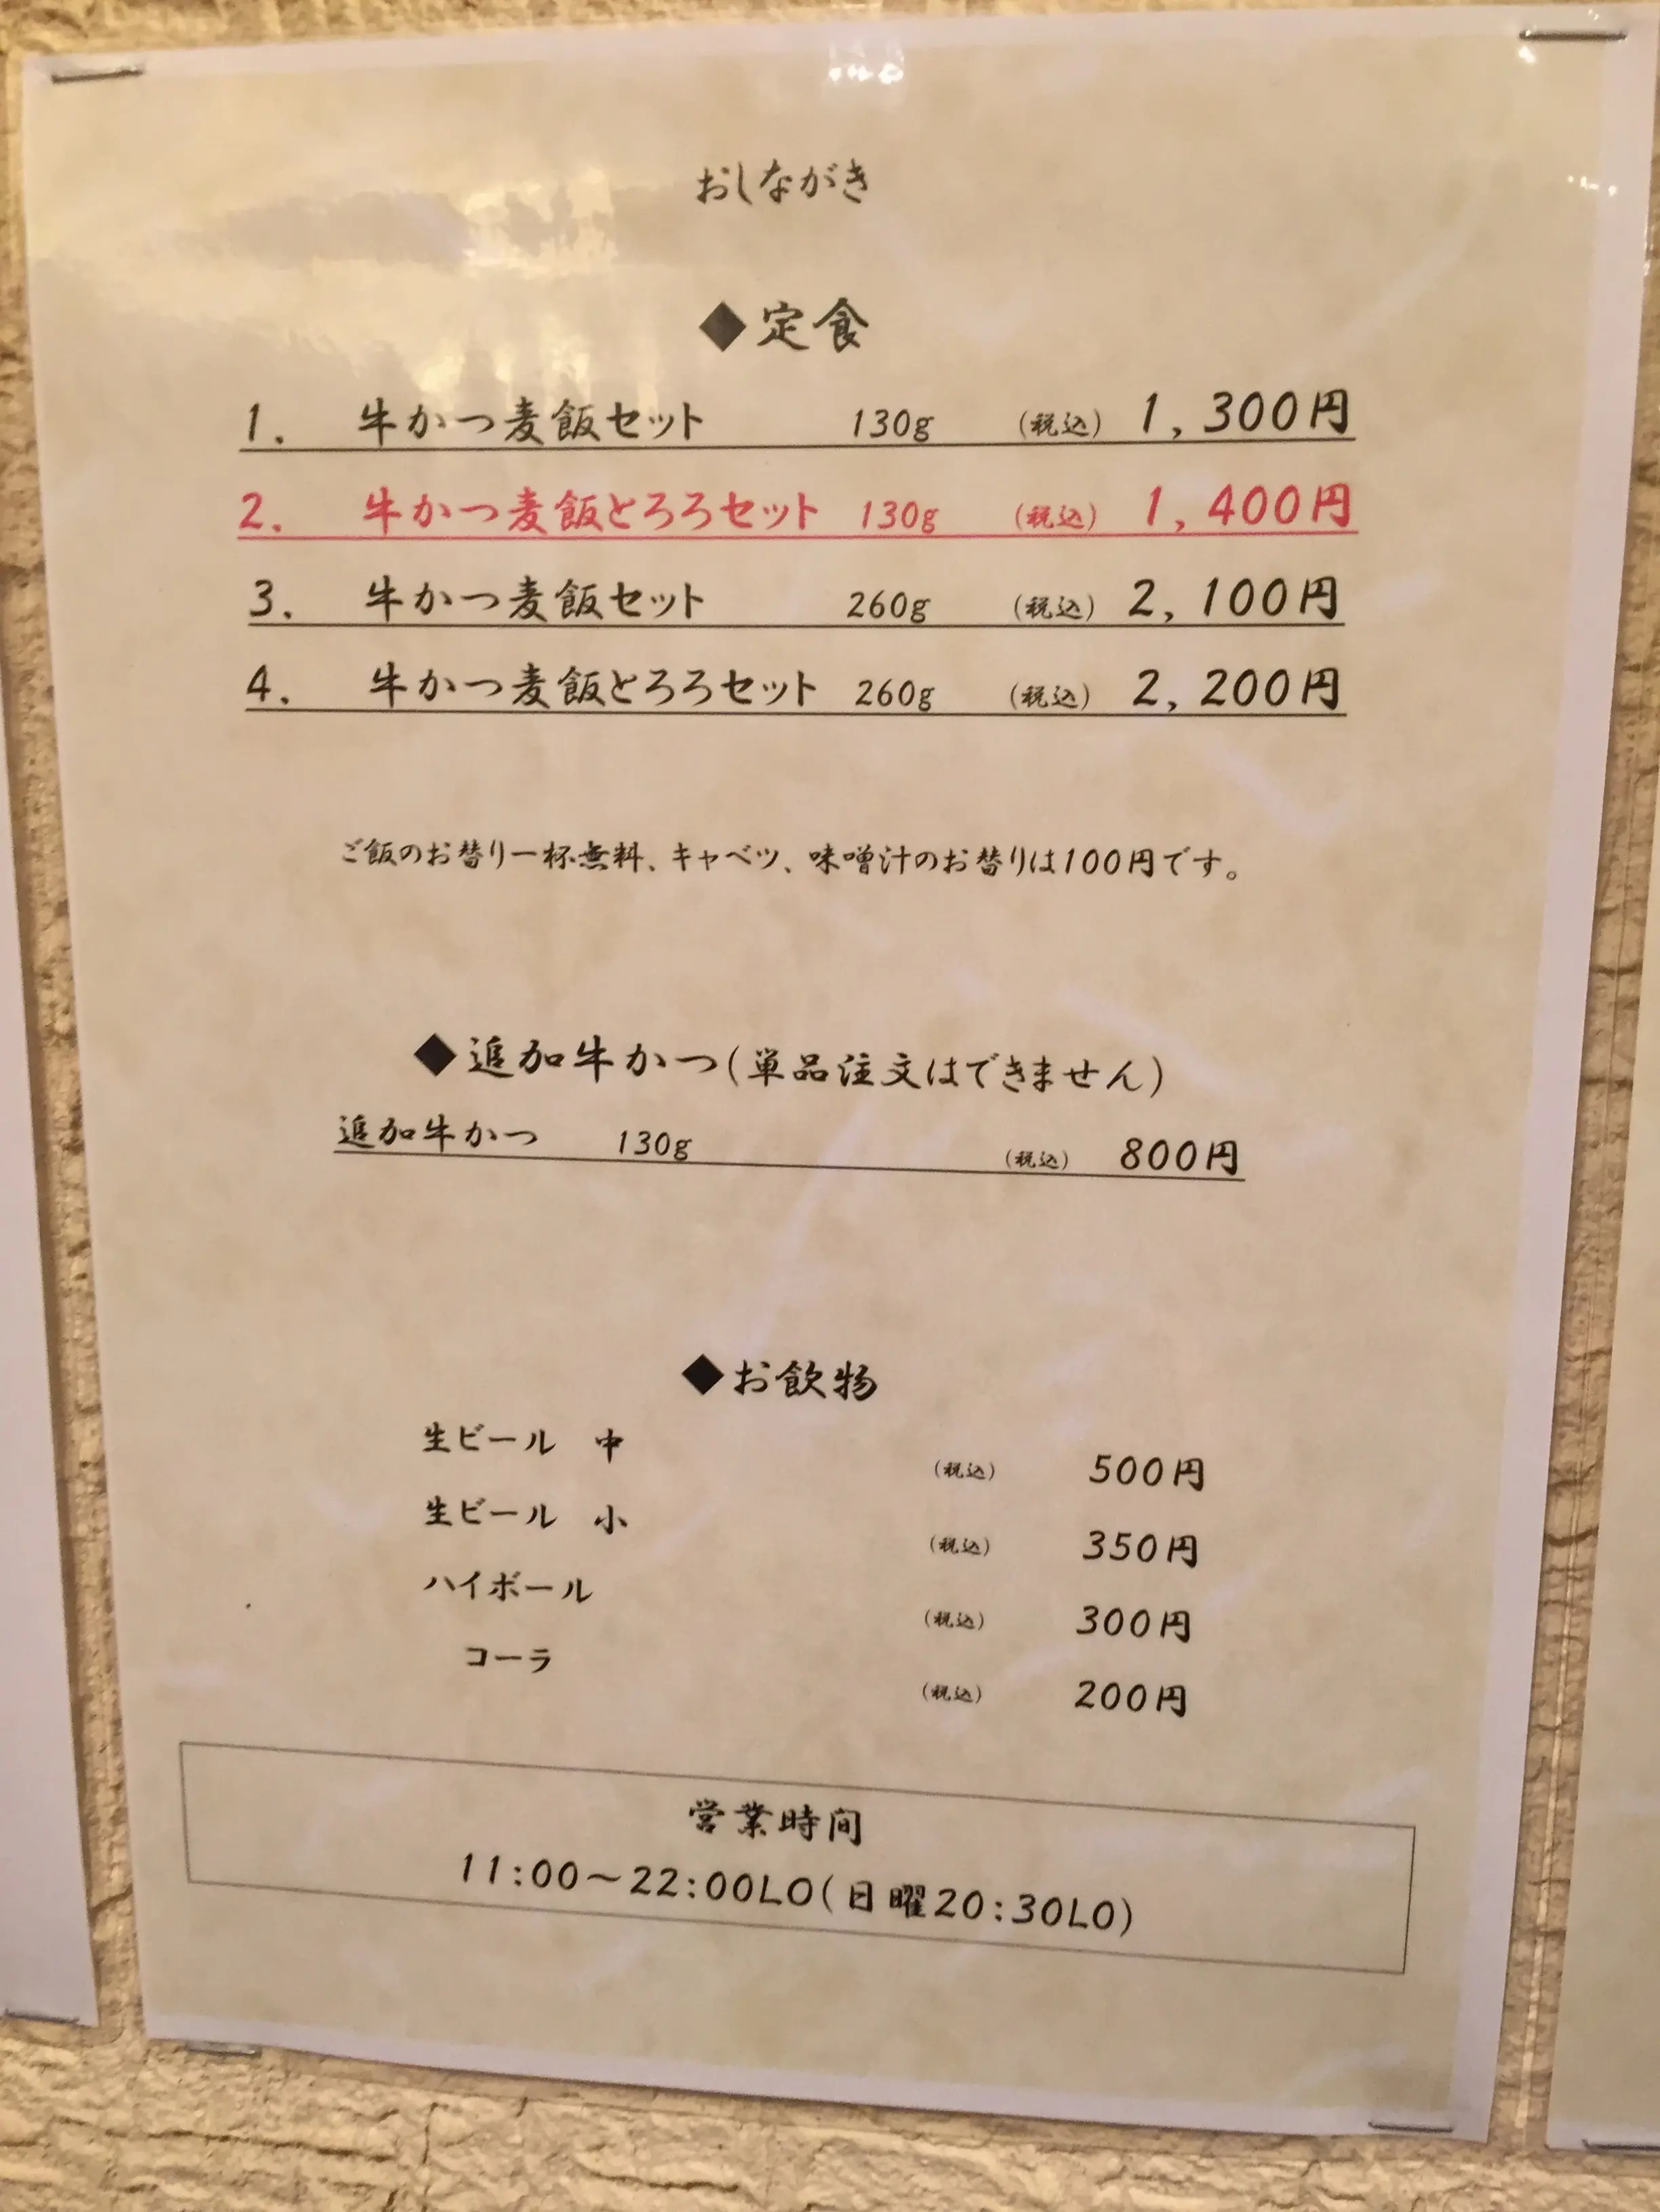 おしながき
◆定食
1. 牛かつ麦飯セット 130g (税込) 1,300円
2. 牛かつ麦飯とろろセット 130g (税込) 1,400円
3. 牛かつ麦飯セット 260g (税込) 2,100円
4. 牛かつ麦飯とろろセット 260g (税込) 2,200円
ご飯のお替り一杯無料、キャベツ、味噌汁のお替りは100円です。
◆追加牛かつ(単品注文はできません)
追加牛かつ 130g (税込) 800円
◆お飲物
生ビール 中 (税込) 500円
生ビール 小 (税込) 350円
ハイボール (税込) 300円
コーラ (税込) 200円
営業時間
11:00～22:00LO(日曜20:30LO)